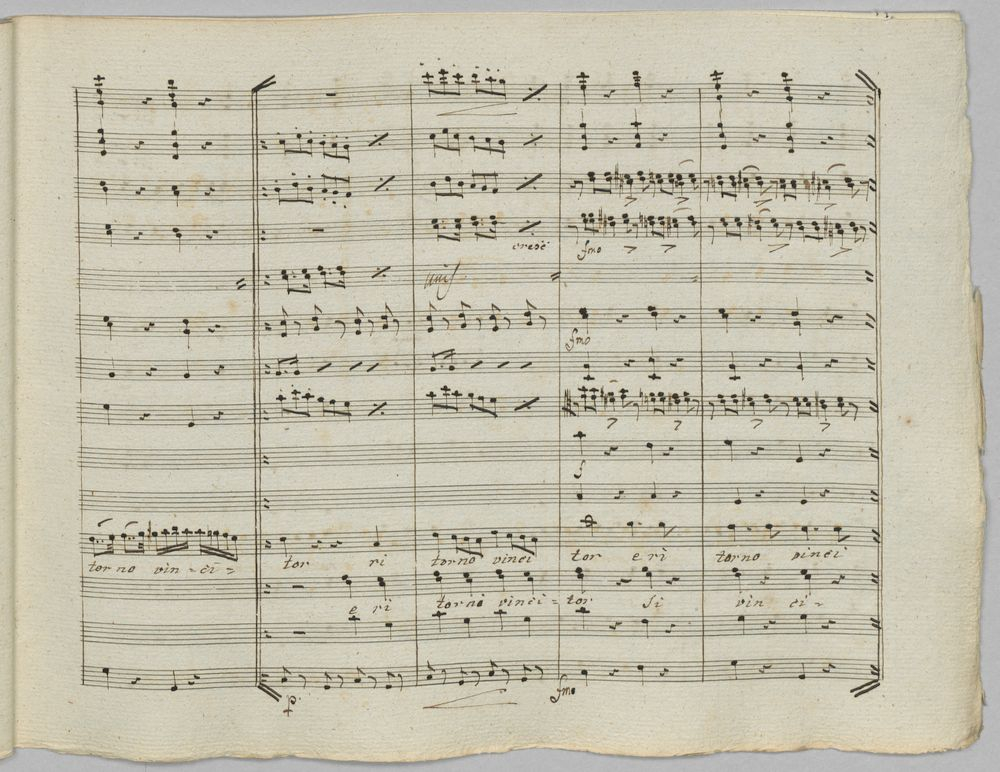 cresc fmo
unis
fmo
f
tor no vin - ci - tor ri torno vinci tor e ri torno vinci
e ri torni vinci - tor si vin ci -
p fmo